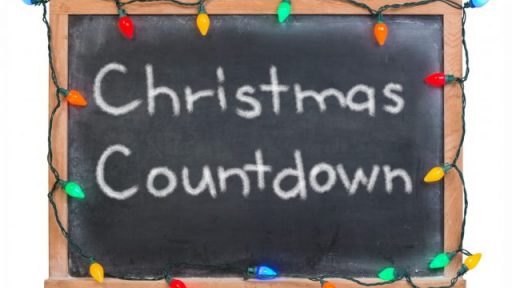 Christmas
Countdown